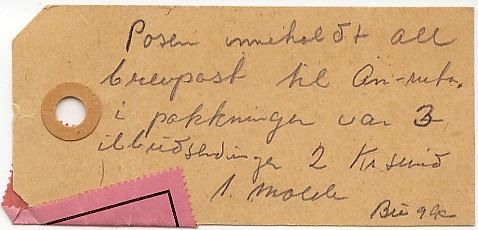 Posen inneholdt all
brevpost til An-ruta.
i pakkninger var 3
ilbudsendinger 2 Kr.sund
1 Molde